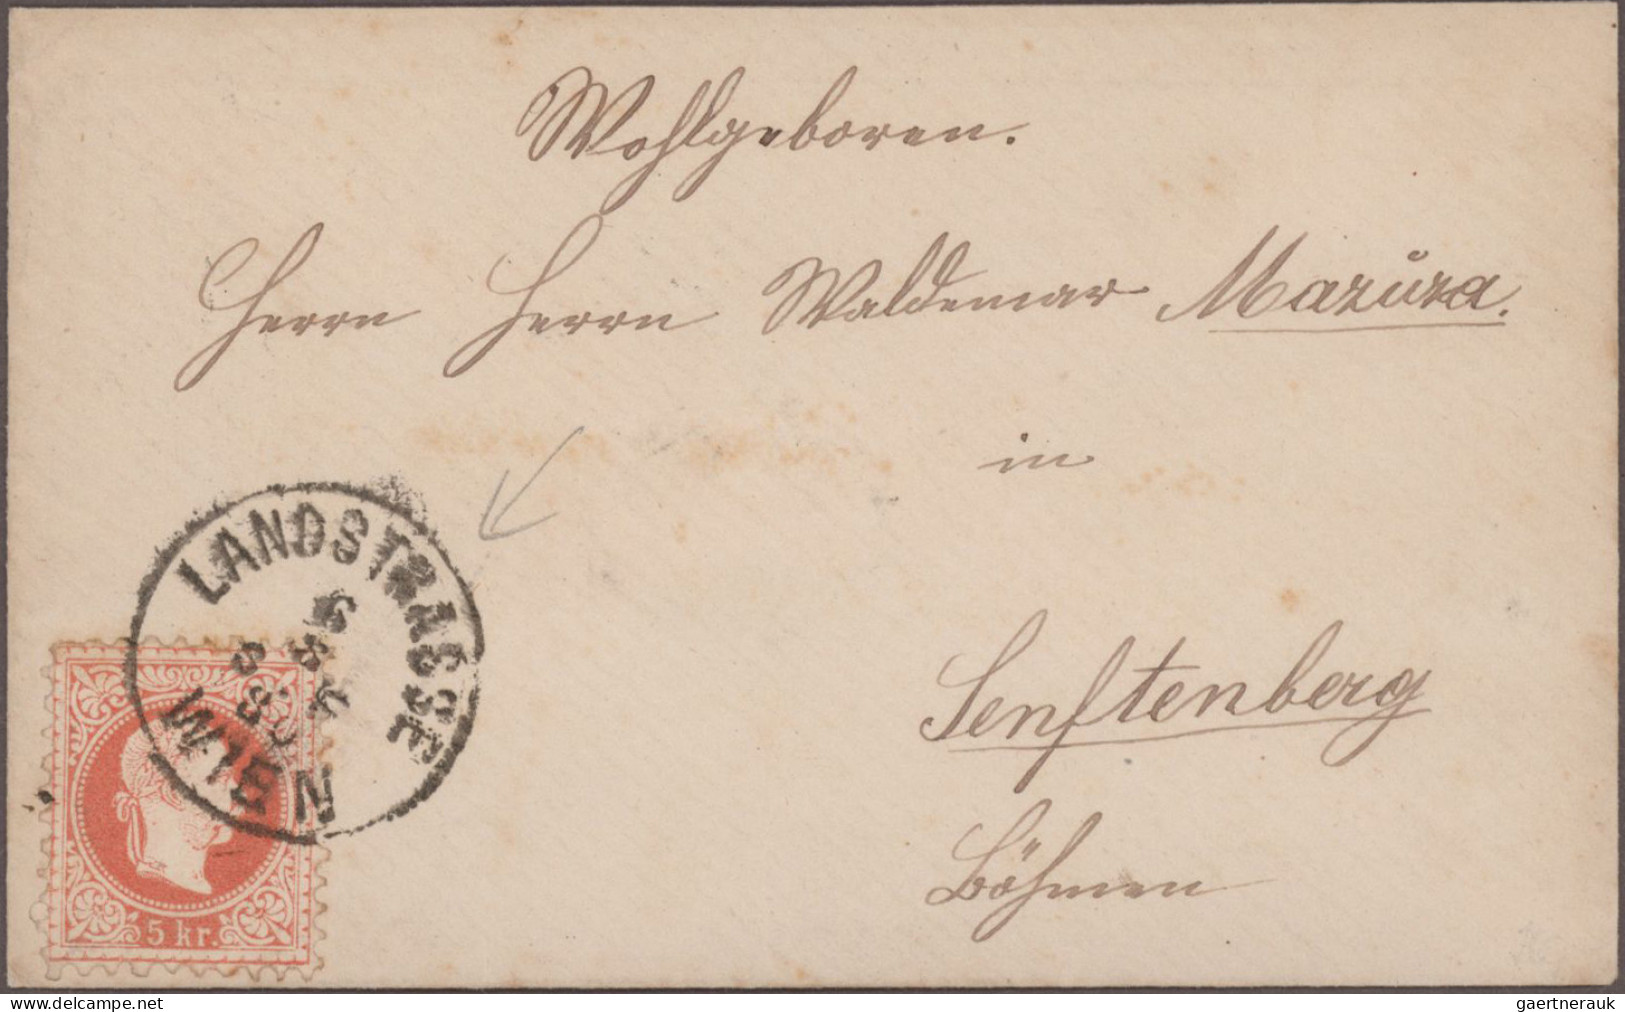 Wohlgeboren.
Herrn Herrn Waldemar Mazura.
in
Senftenberg
Böhmen
LANDSTRASSE
WIEN
5 kr.
www.delcampe.net
gaertnerauk